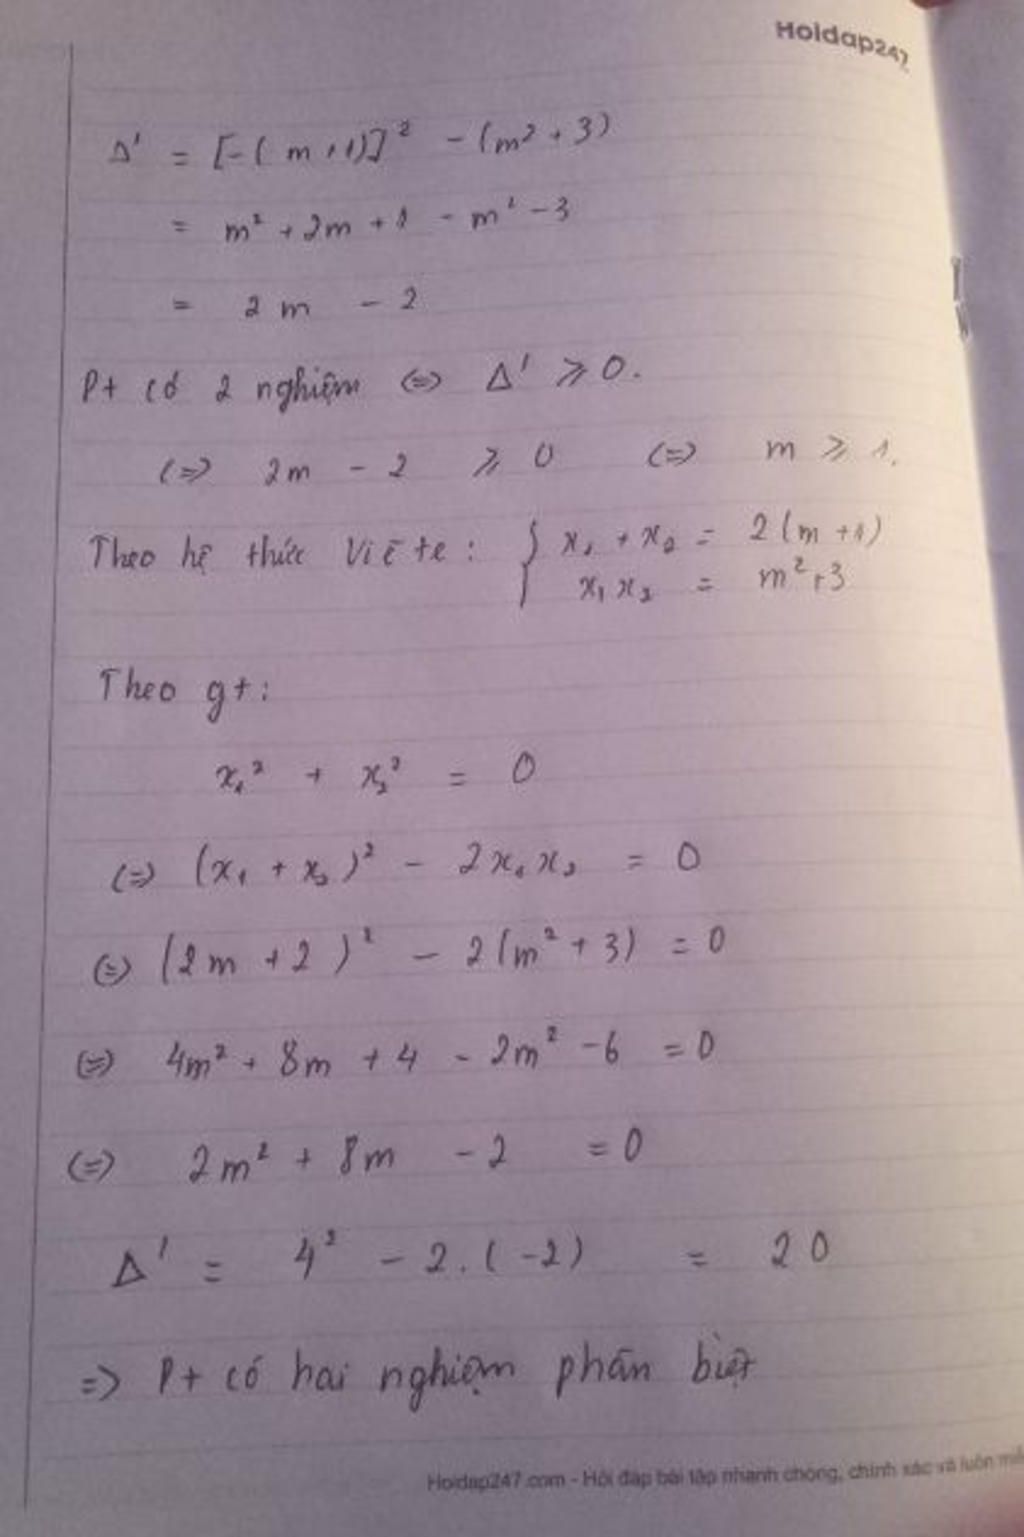 Hoidap247
Δ' = [-(m+1)]² - (m² + 3)
= m² + 2m + 1 - m² - 3
= 2m - 2
Pt có 2 nghiệm <=> Δ' ⩾ 0.
<=> 2m - 2 ⩾ 0 <=> m ⩾ 1.
Theo hệ thức Viète: { x₁ + x₂ = 2(m+1)
x₁x₂ = m²+3
Theo gt:
x₁² + x₂² = 0
<=> (x₁ + x₂)² - 2x₁x₂ = 0
<=> (2m + 2)² - 2(m² + 3) = 0
<=> 4m² + 8m + 4 - 2m² - 6 = 0
<=> 2m² + 8m - 2 = 0
Δ' = 4² - 2.(-2) = 20
=> Pt có hai nghiệm phân biệt
Hoidap247.com - Hỏi đáp bài tập nhanh chóng, chính xác và luôn miễ